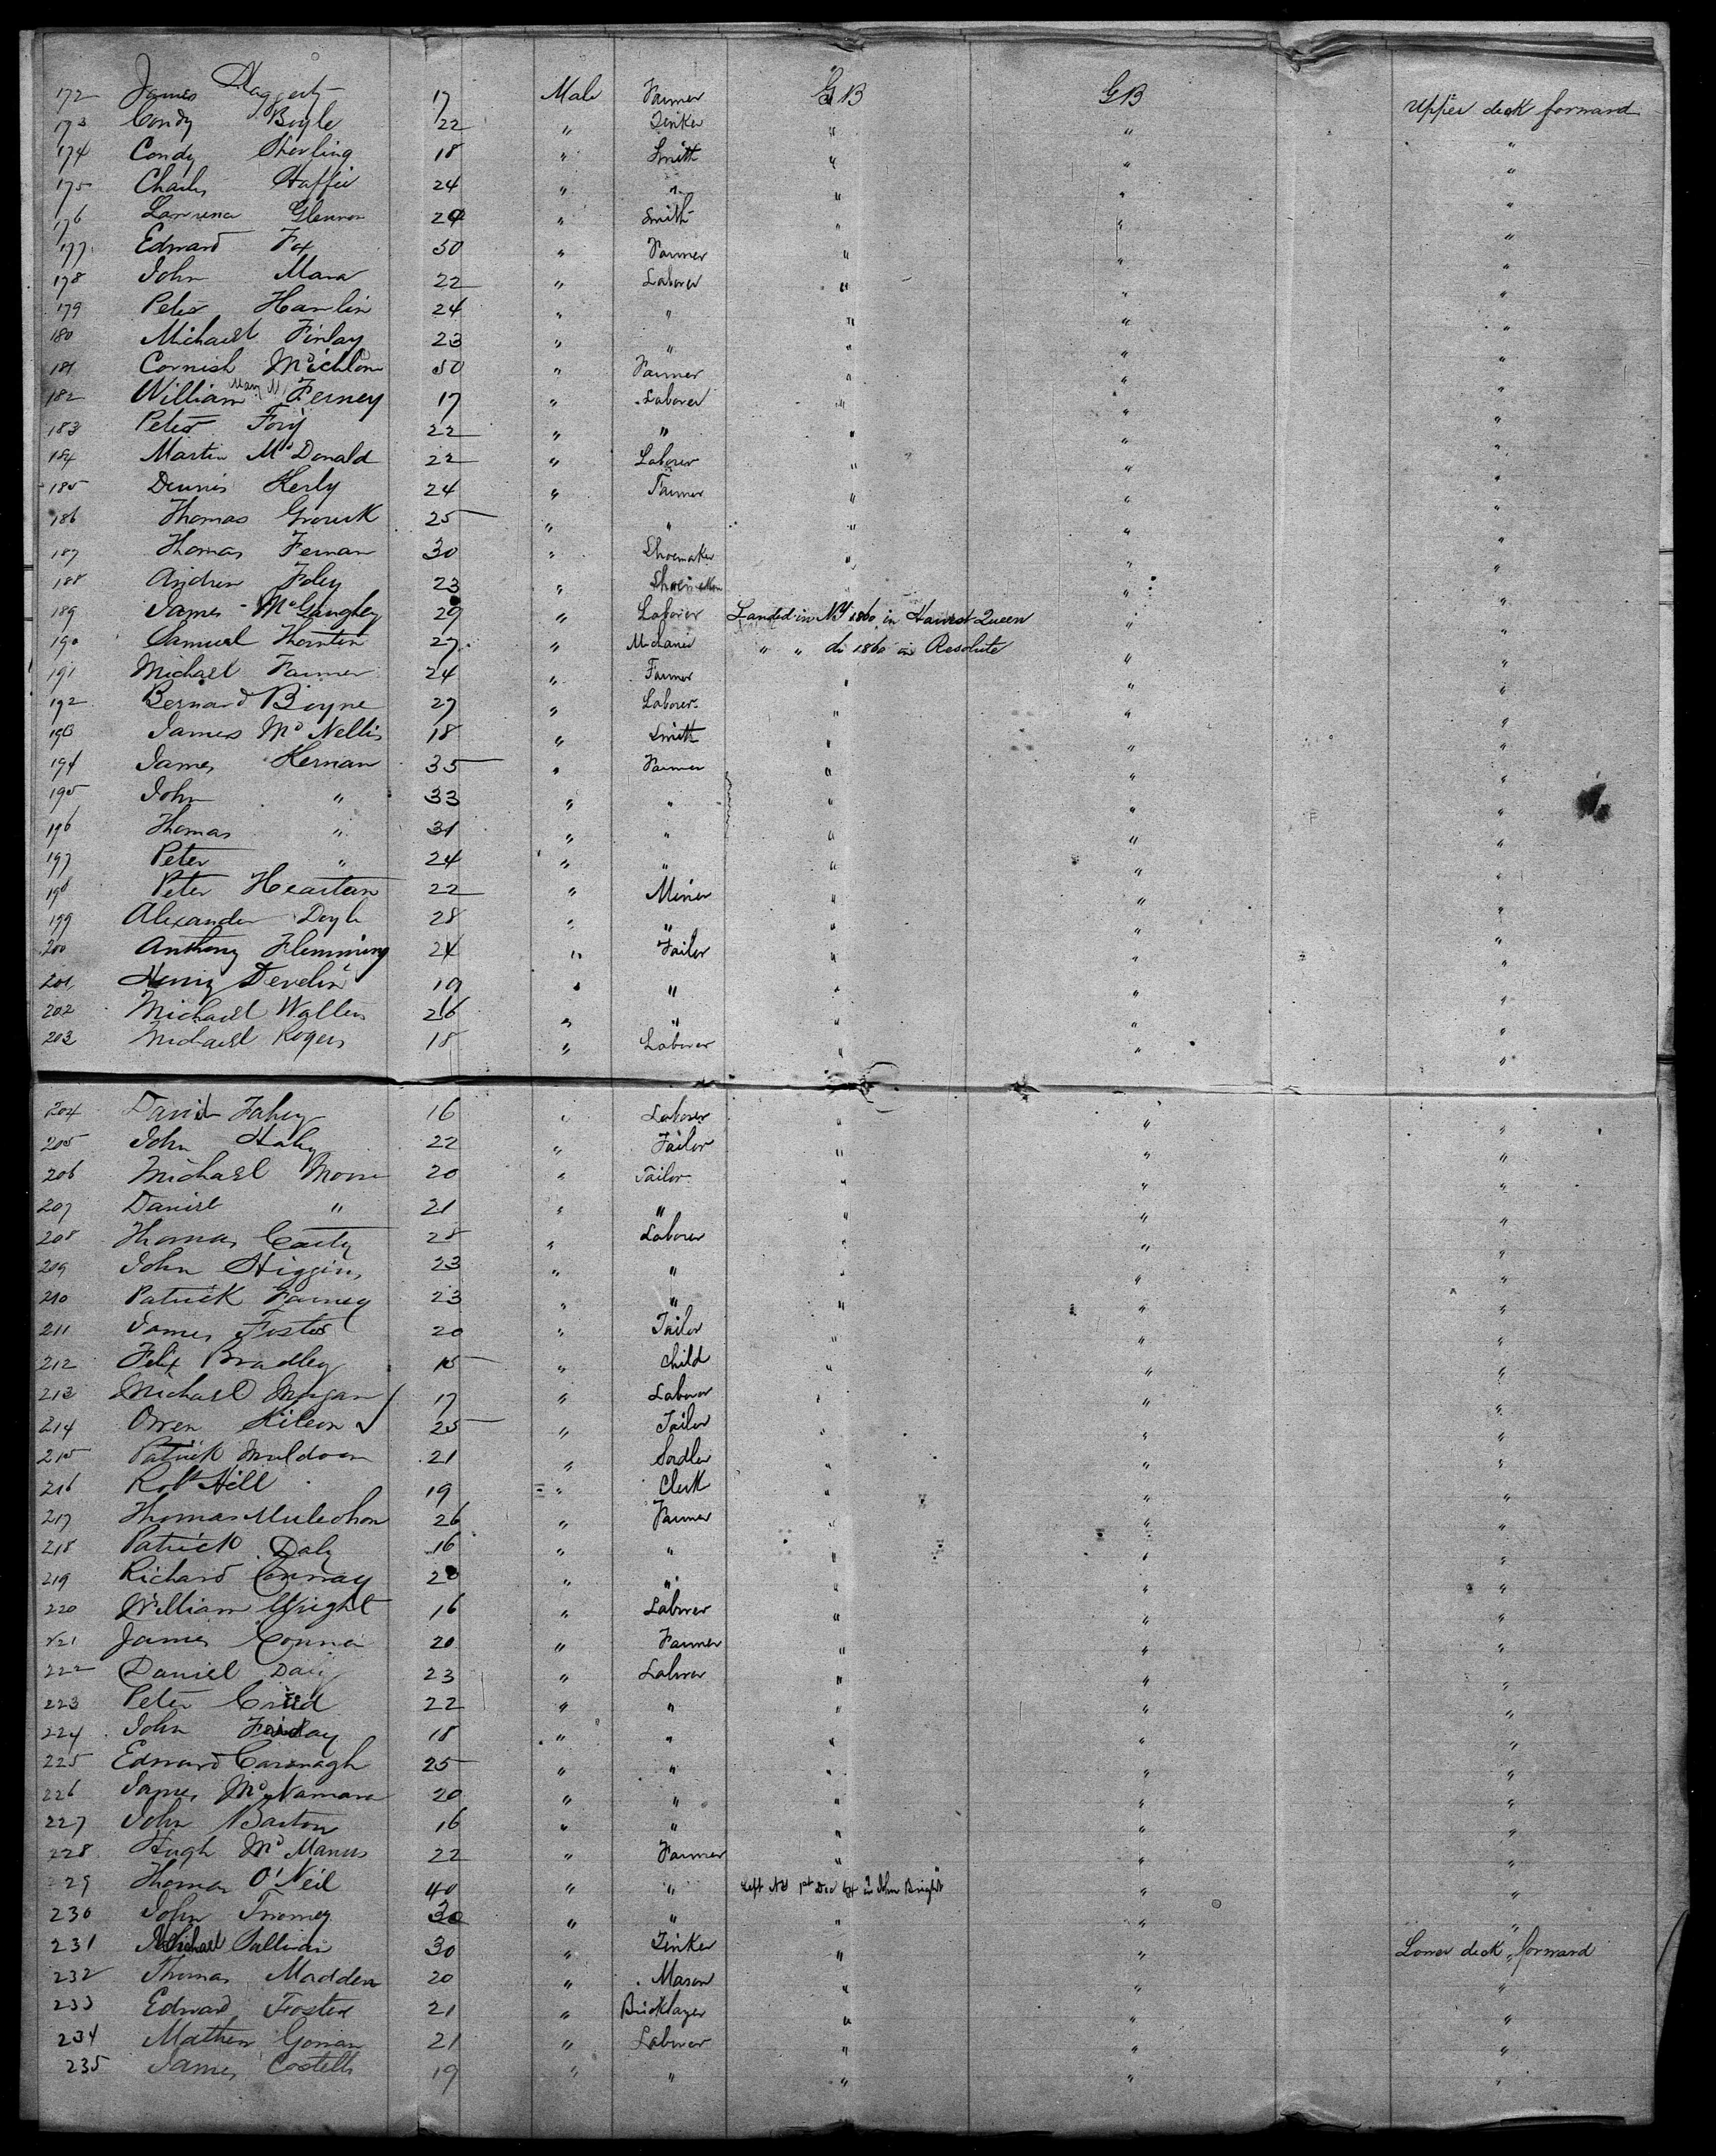 172 James Haggerty 17 Male Farmer GB GB Upper deck forward
173 Condy Boyle 22 " Tinker " " "
174 Condy Sherling 18 " Smith " " "
175 Charles Haffie 24 " " " " "
176 Glennon 24 " Smith " " "
177 Edward Fox 30 " Farmer " " "
178 John Mara 22 " Laborer " " "
179 Peter Hanlin 24 " " " " "
180 Michael Finlay 23 " " " " "
181 Cornish 50 " Farmer " " "
182 William Ferney 17 " Laborer " " "
183 Peter 22 " " " " "
184 Martin McDonald 22 " Laborer " " "
185 Dennis Kerly 24 " Farmer " " "
186 Thomas 25 " " " " "
187 Thomas Fernan 30 " Shoemaker " " "
188 Andrew Foley 23 " " "
189 James McGaughey 29 " Laborer Landed in NY 1860 in Harvest Queen " "
190 Samuel Thornton 27 " Mechanic " " do 1860 in Resolute " "
191 Michael Farmer 24 " Farmer " " "
192 Bernard Boyne 27 " Laborer " " "
193 James McNellis 18 " Smith " " "
194 James Hernan 35 " Farmer " " "
195 John " 33 " " " " "
196 Thomas " 31 " " " " "
197 Peter " 24 " " " " "
198 Peter Heartan 22 " Miner " " "
199 Alexander Doyle 28 " " " " "
200 Anthony Flemming 24 " Tailor " " "
201 Henry Develin 19 " " " " "
202 Michael Walters 26 " " " " "
203 Michael Rogers 18 " Laborer " " "
204 David Fahey 16 " Laborer " " "
205 John Haley 22 " Tailor " " "
206 Michael Moore 20 " Tailor " " "
207 Daniel " 21 " " " " "
208 Thomas Carty 28 " Laborer " " "
209 John Higgins 23 " " " " "
210 Patrick Farney 23 " " " " "
211 James Foster 20 " Tailor " " "
212 Felix Bradley 15 " Child " " "
213 Michael Morgan 17 " Laborer " " "
214 Owen Kileen 25 " Tailor " " "
215 Patrick Muldoon 21 " Sadler " " "
216 Robt Hill 19 " Clerk " " "
217 Thomas Muleohon 26 " Farmer " " "
218 Patrick Daly 16 " " " " "
219 Richard Conway 20 " " " " "
220 William Wright 16 " Laborer " " "
221 James Conna 20 " Farmer " " "
222 Daniel Daly 23 " Laborer " " "
223 Peter Creed 22 " " " " "
224 John Friday 18 " " " " "
225 Edward Cavanagh 25 " " " " "
226 James McNamara 20 " " " " "
227 John Barton 16 " " " " "
228 Hugh McManus 22 " Farmer " " "
229 Thomas O'Neil 40 " " Left NY 1st Dec 64 in "John Bright" " "
230 John Twomey 30 " " " " "
231 Michael Sullivan 30 " Tinker " " Lower deck forward
232 Thomas Madden 20 " Mason " " "
233 Edward Foster 21 " Bricklayer " " "
234 Mathew Gorman 21 " Laborer " " "
235 James Costello 19 " " " " "